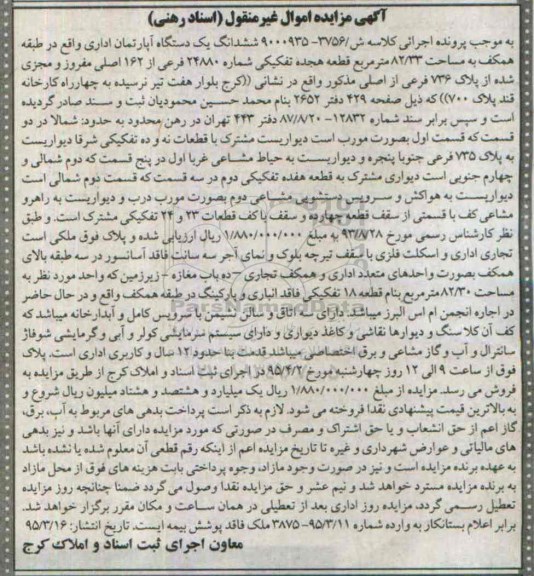 آگهی مزایده اموال غیرمنقول (اسناد رهنی)
به موجب پرونده اجرائی کلاسه ش/۳۷۵۶- ۹۰۰۰۹۳۵ ششدانگ یک دستگاه آپارتمان اداری واقع در طبقه
همکف به مساحت ۸۲/۳۳ مترمربع قطعه هجده تفکیکی شماره ۲۴۸۸۰ فرعی از ۱۶۲ اصلی مفروز و مجزی
شده از پلاک ۷۳۶ فرعی از اصلی مذکور واقع در نشانی ((کرج بلوار هفت تیر نرسیده به چهارراه کارخانه
قند پلاک ۷۰۰)) که ذیل صفحه ۴۲۹ دفتر ۲۶۵۲ بنام محمد حسین محمودیان ثبت و سند صادر گردیده
است و سپس برابر سند شماره ۱۲۸۳۲- ۸۷/۸/۲۰ دفتر ۴۴۳ تهران در رهن محدود به حدود: شمالا در دو
قسمت که قسمت اول بصورت مورب است دیواریست مشترک با قطعات نه و ده تفکیکی شرقا دیواریست
به پلاک ۷۳۵ فرعی جنوبا پنجره و دیواریست به حیاط مشاعی غربا اول در پنج قسمت که دوم شمالی و
چهارم جنوبی است دیواری مشترک به قطعه هفده تفکیکی دوم در سه قسمت که قسمت دوم شمالی است
دیواریست به هواکش و سرویس دستشویی مشاعی دوم بصورت مورب درب و دیواریست به راهرو
مشاعی کف با قسمتی از سقف قطعه چهارده و سقف با کف قطعات ۲۳ و ۲۴ تفکیکی مشترک است. و طبق
نظر کارشناس رسمی مورخ ۹۳/۷/۲۸ به مبلغ ۱/۸۸۰/۰۰۰/۰۰۰ ریال ارزیابی شده و پلاک فوق ملکی است
تجاری اداری و اسکلت فلزی با سقف تیرچه بلوک و نمای آجر سه سانت فاقد آسانسور در سه طبقه بالای
همکف بصورت واحدهای متعدد اداری و همکف تجاری – ده باب مغازه – زیرزمین که واحد مورد نظر به
مساحت ۸۲/۳۰ مترمربع بنام قطعه ۱۸ تفکیکی فاقد انباری و پارکینگ در طبقه همکف واقع و در حال حاضر
در اجاره انجمن ام اس البرز میباشد. دارای سه اتاق و سالن تقسیم با سرویس کامل و آبدارخانه میباشد که
کف آن کلا سنگ و دیوارها نقاشی و کاغذ دیواری و دارای سیستم سرمایشی کولر و آبی و گرمایشی شوفاژ
سانترال و آب و گاز مشاعی و برق اختصاصی میباشد قدمت بنا حدود ۱۲ سال و کاربری اداری است. پلاک
فوق از ساعت ۹ الی ۱۲ روز چهارشنبه مورخ ۹۵/۴/۲ در اجرای ثبت اسناد و املاک کرج از طریق مزایده به
فروش می رسد. مزایده از مبلغ ۱/۸۸۰/۰۰۰/۰۰۰ ریال یک میلیارد و هشتصد و هشتاد میلیون ریال شروع و
به بالاترین قیمت پیشنهادی نقدا فروخته می شود. لازم به ذکر است پرداخت بدهی های مربوط به آب، برق،
گاز اعم از حق انشعاب و یا حق اشتراک و مصرف در صورتی که مورد مزایده دارای آنها باشد و نیز بدهی
های مالیاتی و عوارض شهرداری و غیره تا تاریخ مزایده اعم از اینکه رقم قطعی آن معلوم شده یا نشده باشد
به عهده برنده مزایده است و نیز در صورت وجود مازاد، وجوه پرداختی بابت هزینه های فوق از محل مازاد
به برنده مزایده مسترد خواهد شد و نیم عشر و حق مزایده نقدا وصول می گردد ضمنا چنانچه روز مزایده
تعطیل رسمی گردد، مزایده روز اداری بعد از تعطیلی در همان ساعت و مکان مقرر برگزار خواهد شد.
برابر اعلام بستانکار به وارده شماره ۹۵/۳/۱۱- ۳۸۷۵ ملک فاقد پوشش بیمه ایست. تاریخ انتشار: ۹۵/۳/۱۶
معاون اجرای ثبت اسناد و املاک کرج